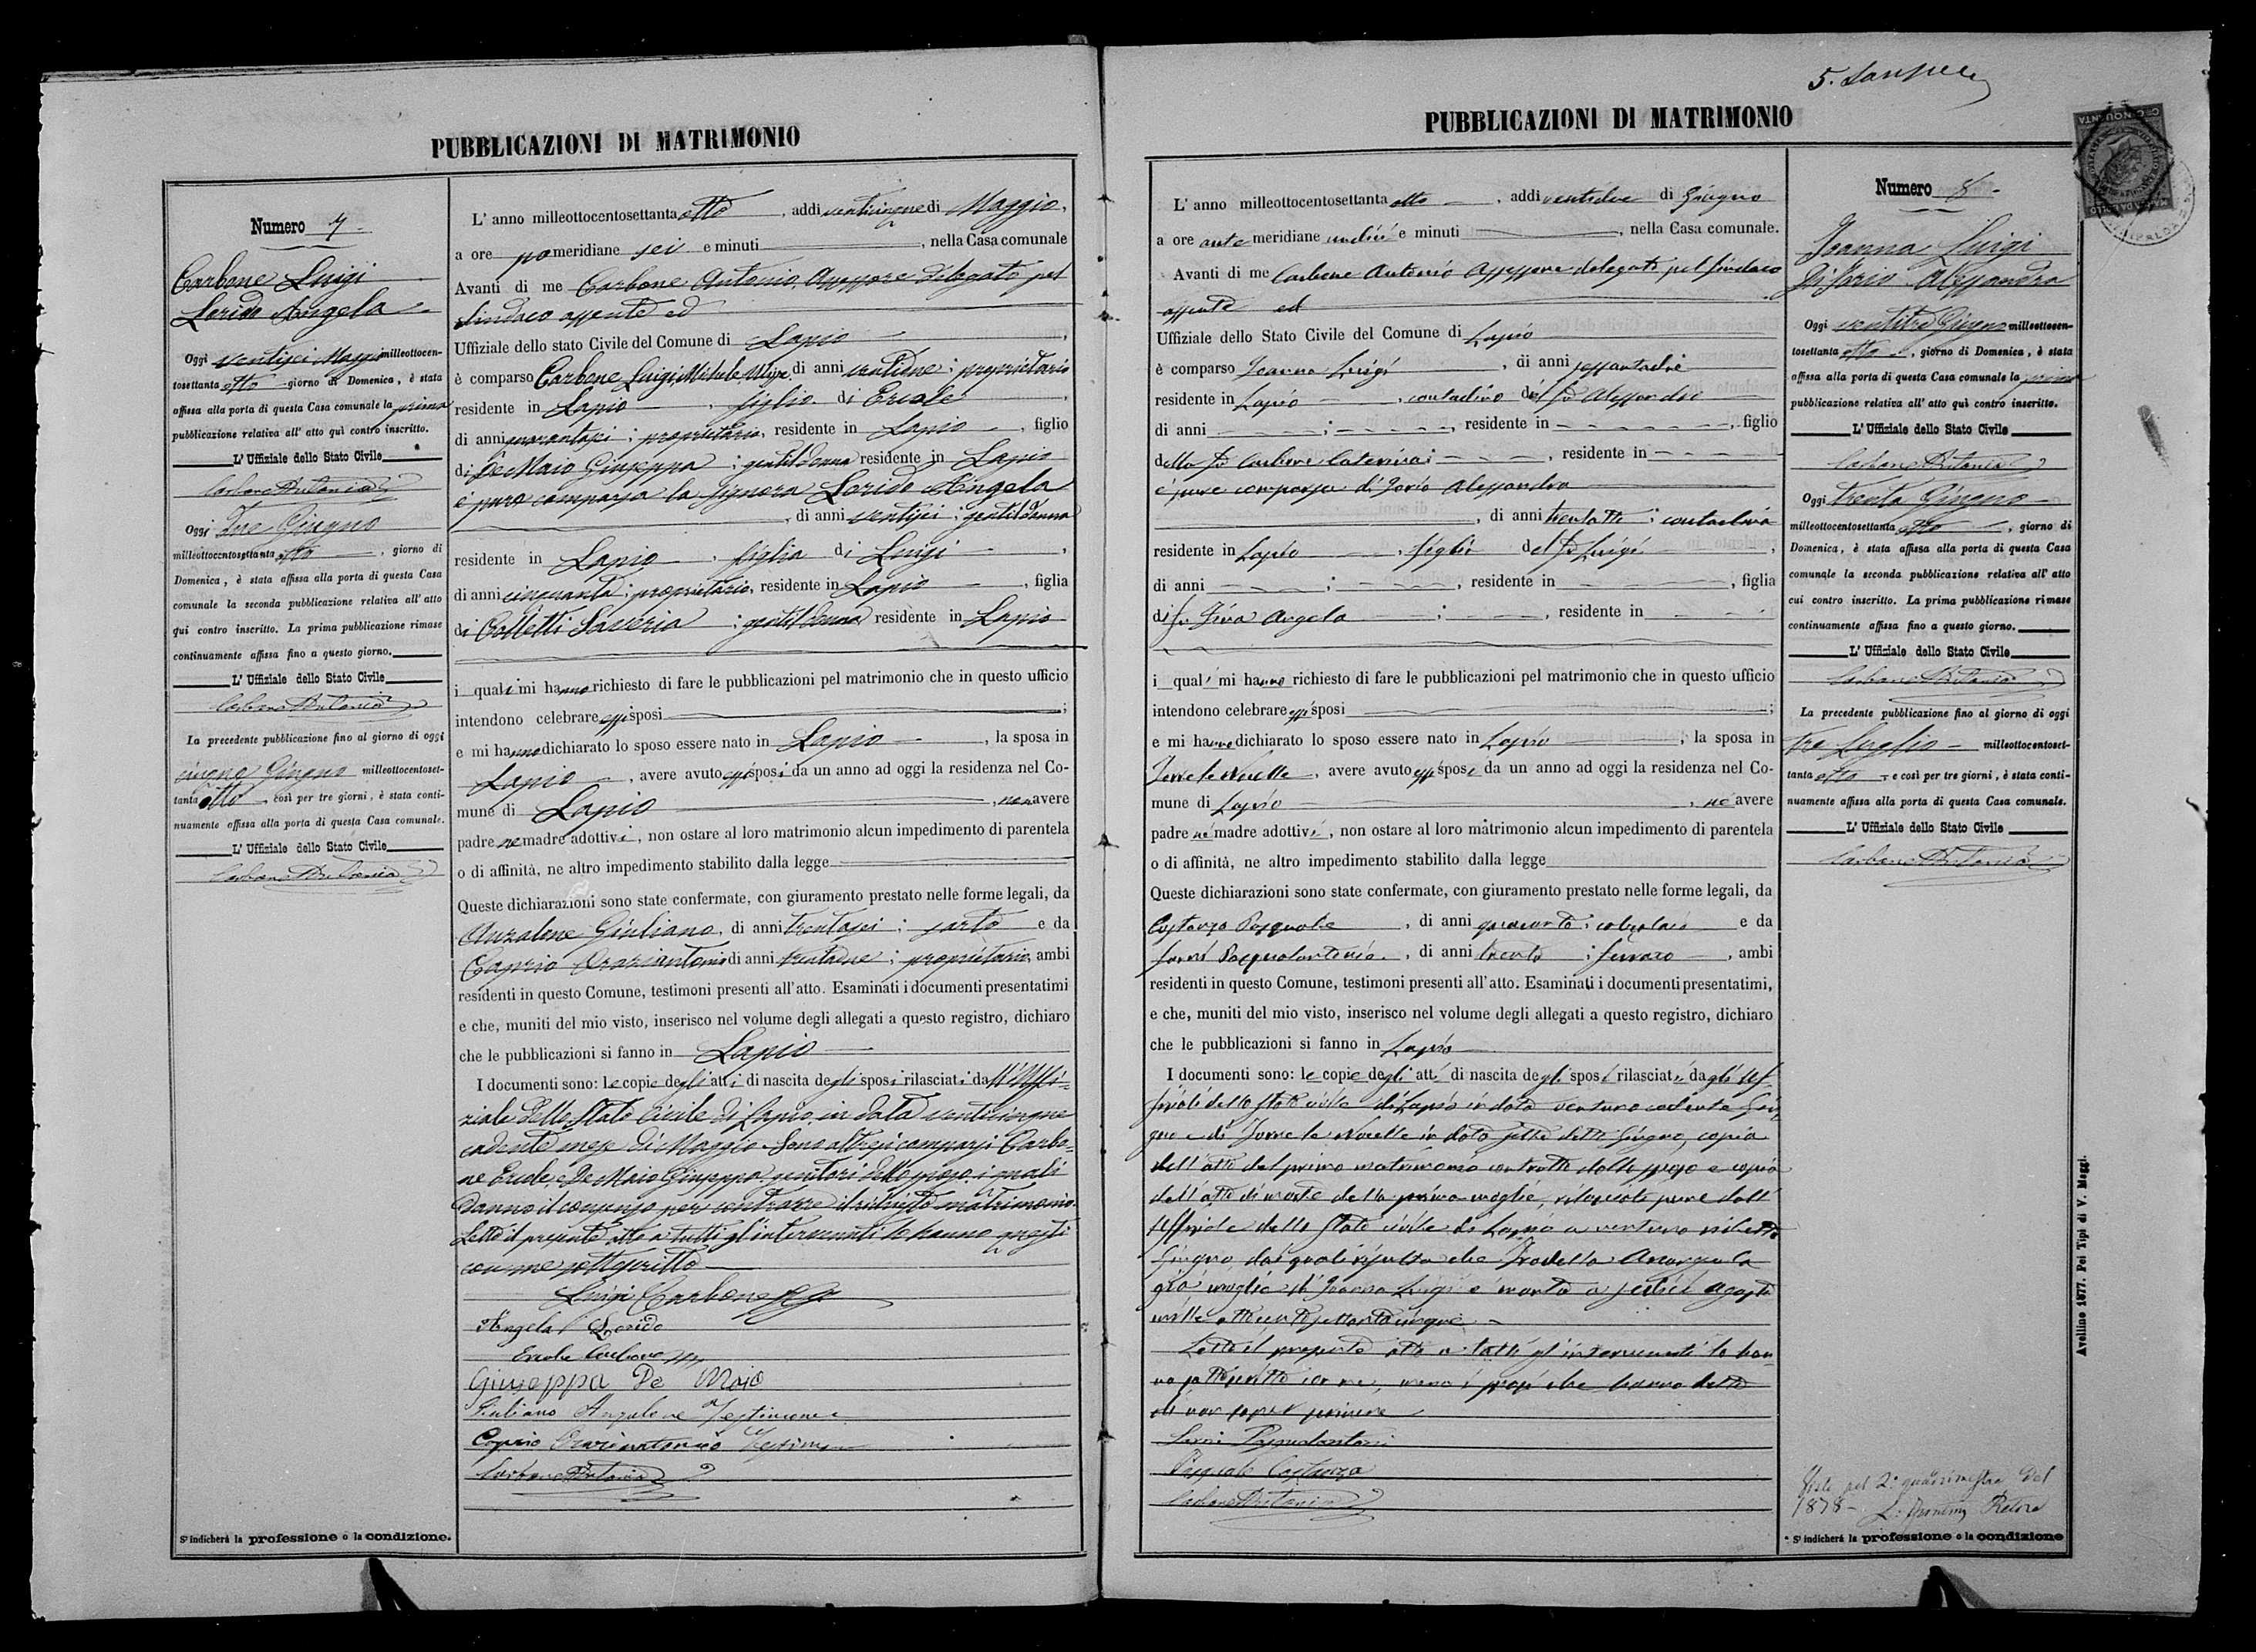 PUBBLICAZIONI DI MATRIMONIO
Numero 7
Carbone Luigi
Lorido Angela
Oggi ventisei Maggio milleottocen-
tosettanta otto giorno di Domenica, è stata
affissa alla porta di questa Casa comunale la prima
pubblicazione relativa all' atto quì contro inscritto.
L' Uffiziale dello Stato Civile
Carbone Antonio
Oggi Tre Giugno
milleottocentosettanta otto, giorno di
Domenica, è stata affissa alla porta di questa Casa
comunale la seconda pubblicazione relativa all' atto
qui contro inscritto. La prima pubblicazione rimase
continuamente affissa fino a questo giorno.
L' Uffiziale dello Stato Civile
Carbone Antonio
La precedente pubblicazione fino al giorno di oggi
cinque Giugno milleottocentoset-
tanta otto così per tre giorni, è stata conti-
nuamente affissa alla porta di questa Casa comunale.
L' Uffiziale dello Stato Civile
Carbone Antonio
S' indicherà la professione o la condizione.
L' anno milleottocentosettanta otto, addi venticinque di Maggio,
a ore pomeridiane sei e minuti, nella Casa comunale
Avanti di me Carbone Antonio, Assessore delegato pel
Sindaco assente ed
Uffiziale dello stato Civile del Comune di Lapio
è comparso Carbone Luigi Michele di anni ventidue; proprietario
residente in Lapio, figlio di Ercole,
di anni quarantasei; proprietario, residente in Lapio, figlio
di De Maio Giuseppa; gentildonna residente in Lapio
è pure comparsa la Signora Lorido Angela
, di anni ventisei; gentildonna
residente in Lapio, figlia di Luigi,
di anni cinquanta; proprietario, residente in Lapio, figlia
di Colletti Saveria; gentildonna residente in Lapio
i quali mi hanno richiesto di fare le pubblicazioni pel matrimonio che in questo ufficio
intendono celebrare essi sposi;
e mi hanno dichiarato lo sposo essere nato in Lapio, la sposa in
Lapio, avere avuto essi sposi da un anno ad oggi la residenza nel Co-
mune di Lapio, non avere
padre ne madre adottivi, non ostare al loro matrimonio alcun impedimento di parentela
o di affinità, ne altro impedimento stabilito dalla legge
Queste dichiarazioni sono state confermate, con giuramento prestato nelle forme legali, da
Anzalone Giuliano, di anni trentasei; sarto e da
Caprio Oraziantonio di anni trentadue; proprietario, ambi
residenti in questo Comune, testimoni presenti all' atto. Esaminati i documenti presentatimi
e che, muniti del mio visto, inserisco nel volume degli allegati a questo registro, dichiaro
che le pubblicazioni si fanno in Lapio
I documenti sono: le copie degli atti di nascita degli sposi rilasciati da ll'Uffi-
ziale dello Stato Civile di Lapio in data venticinque
cadente mese di Maggio. Sono altresì comparsi Carbo-
ne Ercole e De Maio Giuseppa genitori dello sposo i quali
danno il consenso per contrarre il richiesto matrimonio.
Letto il presente atto a tutti gl'intervenuti lo hanno questi
con me sottoscritto
Luigi Carbone
Angela Lorido
Ercole Carbone
Giuseppa De Maio
Giuliano Anzalone Testimone
Caprio Oraziantonio Testimone
Carbone Antonio
5.
PUBBLICAZIONI DI MATRIMONIO
L' anno milleottocentosettanta otto, addi ventidue di Giugno
a ore antemeridiane undici e minuti, nella Casa comunale.
Avanti di me Carbone Antonio Assessore delegato pel Sindaco
assente ed
Uffiziale dello Stato Civile del Comune di Lapio
è comparso Joanna Luigi, di anni sessantadue
residente in Lapio, contadino del fu Alessandro
di anni ; , residente in , figlio
della fu Carbone Caterina; , residente in
è pure comparsa di Iorio Alessandra
, di anni trentotto; contadina
residente in Lapio, figlia del fu Luigi,
di anni ; , residente in , figlia
di fu Angela ; , residente in
i quali mi hanno richiesto di fare le pubblicazioni pel matrimonio che in questo ufficio
intendono celebrare essi sposi;
e mi hanno dichiarato lo sposo essere nato in Lapio, la sposa in
Torre le Nocelle, avere avuto essi sposi da un anno ad oggi la residenza nel Co-
mune di Lapio, nè avere
padre nè madre adottivi, non ostare al loro matrimonio alcun impedimento di parentela
o di affinità, ne altro impedimento stabilito dalla legge
Queste dichiarazioni sono state confermate, con giuramento prestato nelle forme legali, da
Costanza Pasquale, di anni quaranta; calzolaio e da
Pasqualantonio, di anni trenta; ferraro, ambi
residenti in questo Comune, testimoni presenti all' atto. Esaminati i documenti presentatimi,
e che, muniti del mio visto, inserisco nel volume degli allegati a questo registro, dichiaro
che le pubblicazioni si fanno in Lapio
I documenti sono: le copie degli atti di nascita degli sposi rilasciati dagli Uf-
fiziali dello Stato civile di Lapio in data ventuno cadente Giu
gno e di Torre le Nocelle in data sette detto Giugno, copia
dell'atto del primo matrimonio contratto dallo sposo e copia
dell'atto di morte della prima moglie, rilasciate pure dall'
Uffiziale dello Stato civile di Lapio a ventuno
Giugno dai quali risulta che
già moglie di Joanna Luigi è morta a sedici Agosto
mille ottocento settantacinque
Letto il presente atto a tutti gl'intervenuti lo han-
no sottoscritto con me, meno i sposi che hanno detto
di non saper scrivere
Pasquale Costanza
Carbone Antonio
Numero 8
Joanna Luigi
Di Iorio Alessandra
Oggi ventitre Giugno milleottocen-
tosettanta otto, giorno di Domenica, è stata
affissa alla porta di questa Casa comunale la prima
pubblicazione relativa all' atto quì contro inscritto.
L' Uffiziale dello Stato Civile
Carbone Antonio
Oggi trenta Giugno
milleottocentosettanta otto, giorno di
Domenica, è stata affissa alla porta di questa Casa
comunale la seconda pubblicazione relativa all' atto
cui contro inscritto. La prima pubblicazione rimase
continuamente affissa fino a questo giorno.
L' Uffiziale dello Stato Civile
Carbone Antonio
La precedente pubblicazione fino al giorno di oggi
tre Luglio milleottocentoset-
tanta otto e così per tre giorni, è stata conti-
nuamente affissa alla porta di questa Casa comunale.
L' Uffiziale dello Stato Civile
Carbone Antonio
Visto pel 2° quadrimestre del
1878 Pretore
* S' indicherà la professione o la condizione
Avellino 1877. Pei Tipi di V. Maggi.